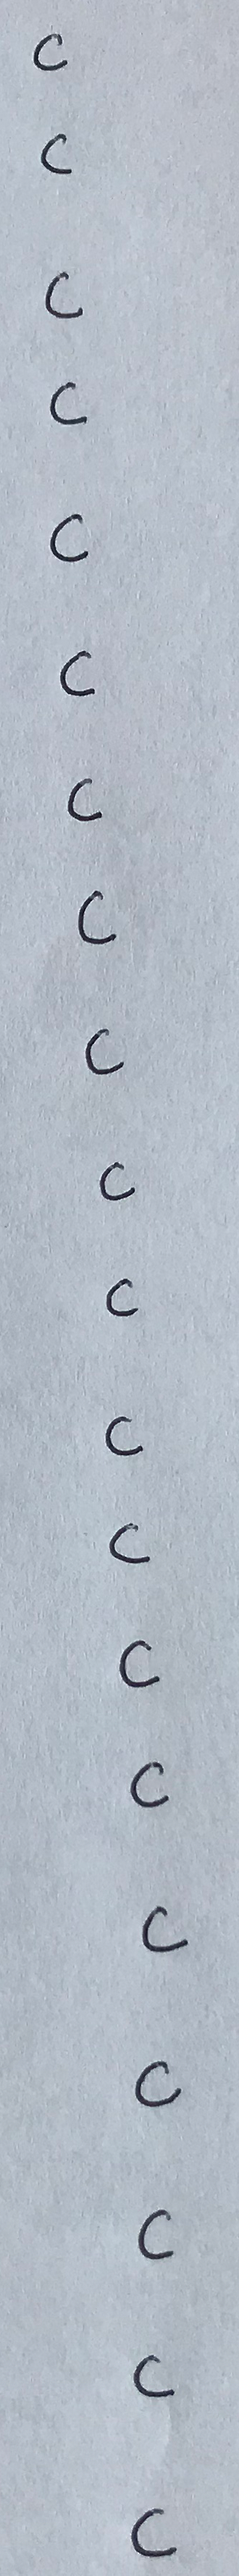 C
C
C
C
C
C
C
C
C
C
C
C
C
C
C
C
C
C
C
C